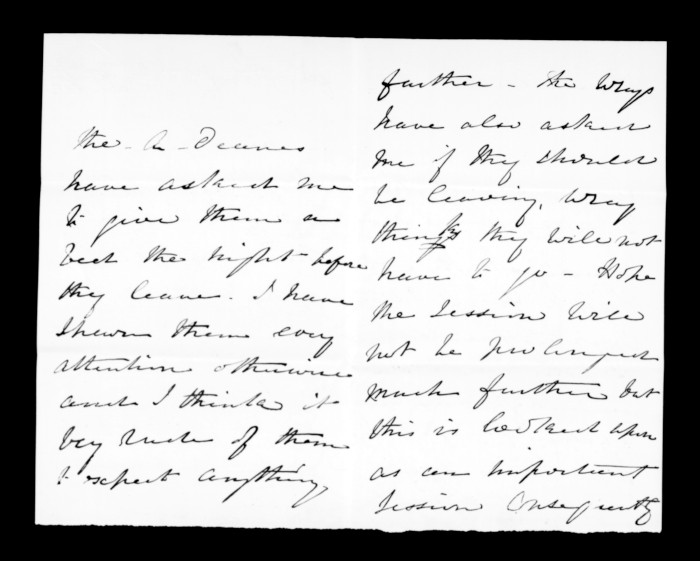 the - A - Deanes
have asked me
to give them a
bed the night before
they leave. I have
shewn them every
attention otherwise
and I think it
very rude of them
to expect anything
further - the Wrays
have also asked
me if they should
be leaving, Wray
thinks they will not
have to go - Hope
the Session will
not be prolonged
much further but
this is looked upon
as an important
Session Consequently